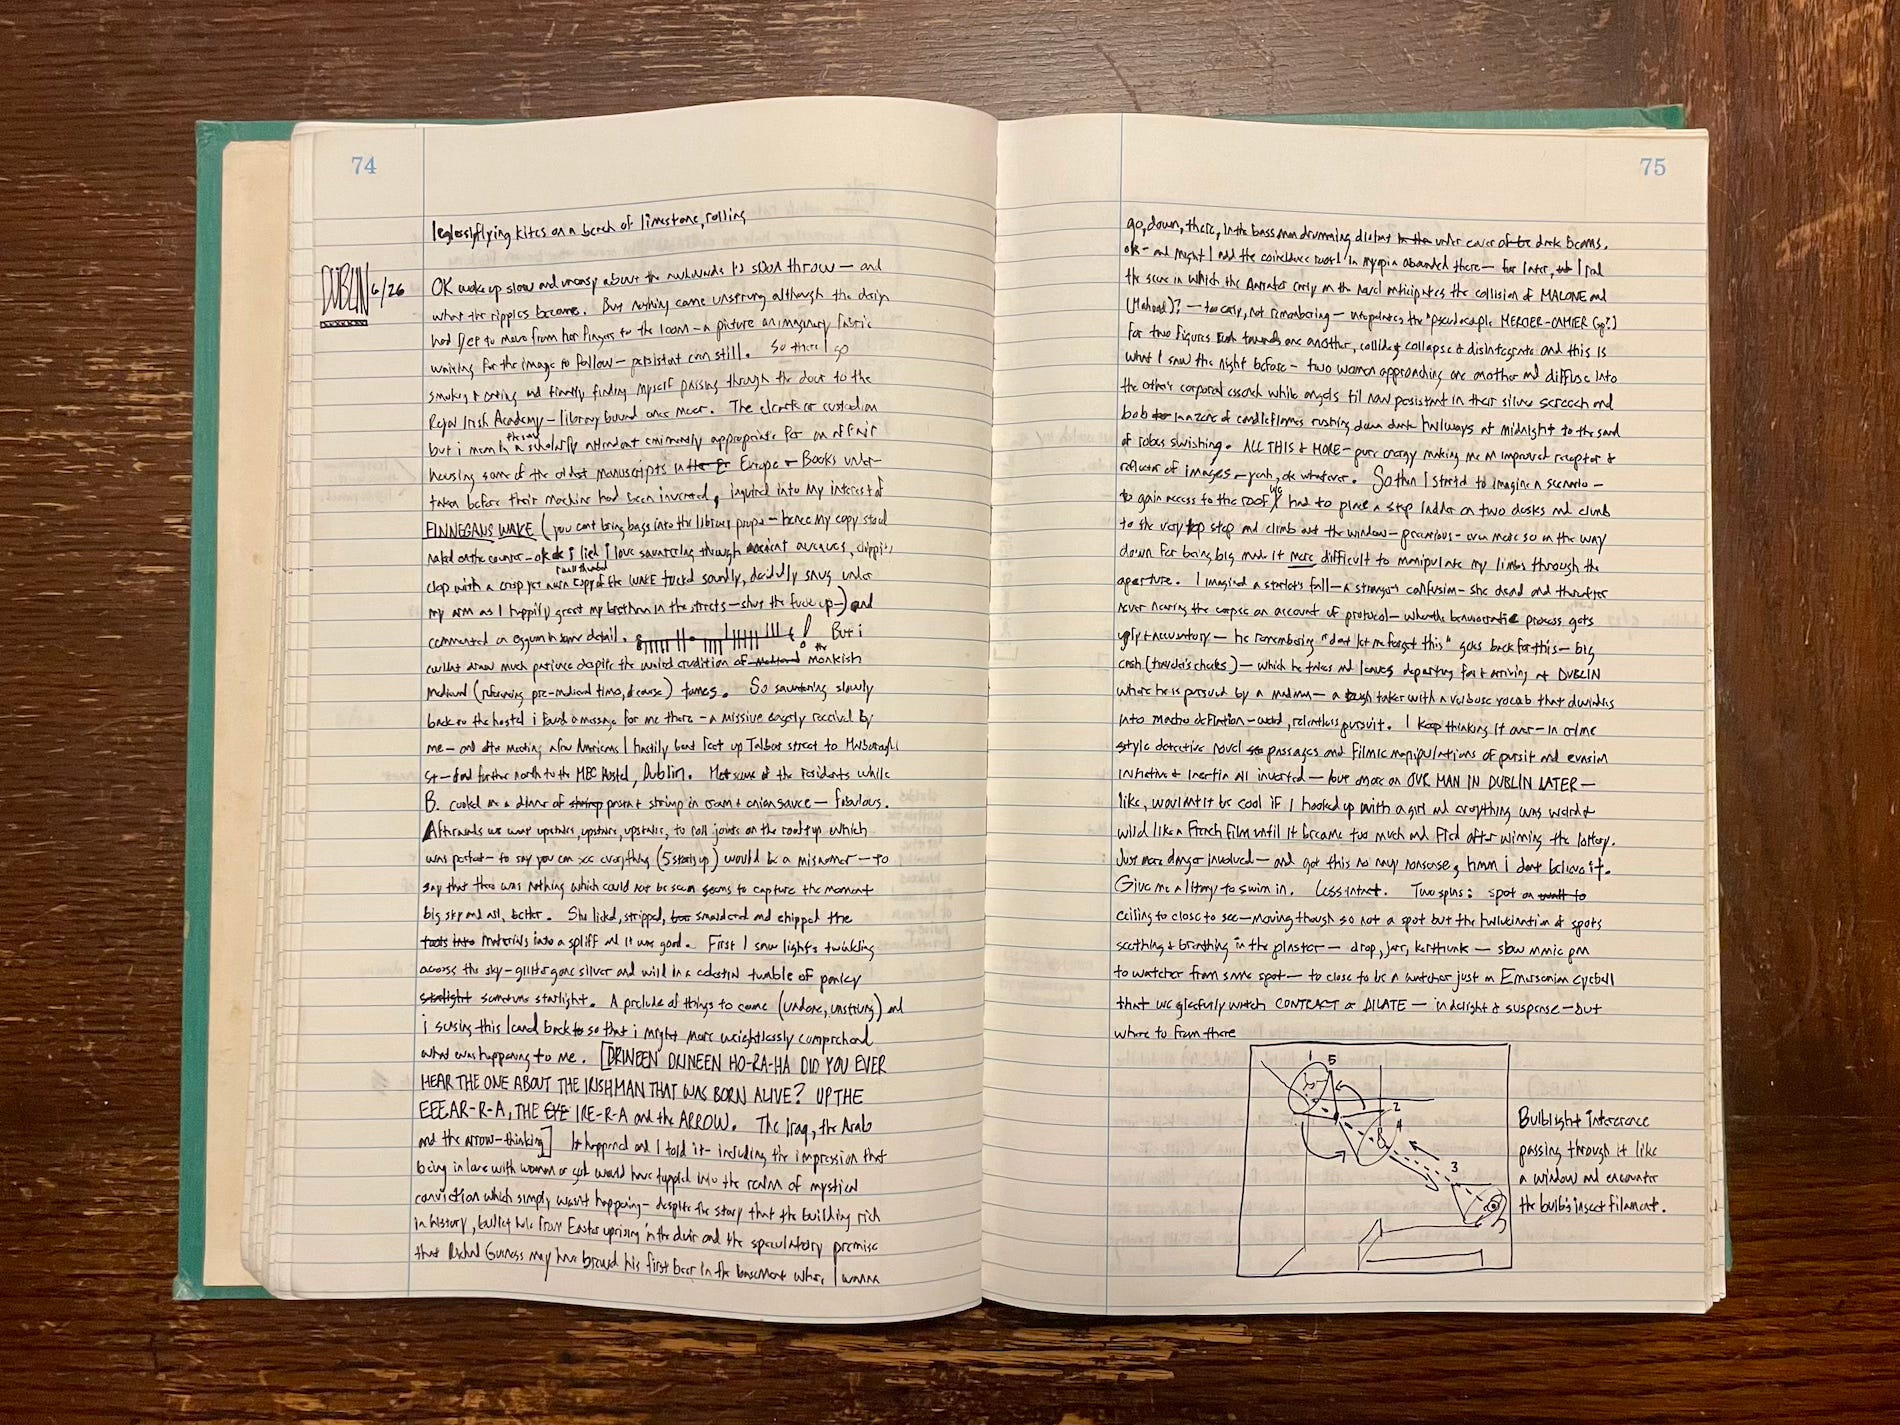 74
flying kites on a beach of limestone, rolling
DUBLIN 6/26
OK woke up slow and uneasy about the throw — and
what the ripples become. But nothing came unsprung although the
had yet to move from her fingers to the loom — a picture an imaginary fabric
waiting for the image to follow — persistent even still. So there I go
smoking & eating and finally finding myself passing through the door to the
Royal Irish Academy — library bound once more. The clerk or custodian
but i mean a scholarly attendant eminently appropriate for an affair
housing some of the oldest manuscripts in the Europe — Books under-
taken before their machine had been invented, inquired into my interest of
FINNEGANS WAKE (you cant bring bags into the library proper — hence my copy stood
naked on the counter — ok ok i lied i love sauntering through ancient avenues,
clop with a crisp yet worn copy of the WAKE tucked soundly, decidedly snug under
my arm as I happily greet my brethren in the streets — shut the fuck up —) and
commented on oggum in some detail. ! But i
couldnt draw much patience despite the erudition of the monkish
medieval (referencing pre-medieval time, of course) tomes. So sauntering slowly
back to the hostel i found a message for me there — a missive eagerly received by
me — and after meeting a few Americans I hastily beat feet up Talbot street to Marlborough
St — and further north to the MEC Hostel, Dublin. Met some of the residents while
B. cooked me a dinner of shrimp in cream & onion sauce — fabulous.
Afterwards we went upstairs, upstairs, upstairs, to roll joints on the rooftop which
was perfect — to say you can see everything (5 stories up) would be a misnomer — to
say that there was nothing which could not be seen seems to capture the moment
big sky and all, better. She licked, stripped, and chipped the
materials into a spliff and it was good. First I saw lights twinkling
across the sky — glitter gone silver and wild in a celestial tumble of
starlight starlight. A prelude of things to come (undone, unstrung) and
i swing this land back so that i might more weightlessly comprehend
what was happening to me. [DRINEEN DRINEEN HO-RA-HA DID YOU EVER
HEAR THE ONE ABOUT THE IRISHMAN THAT WAS BORN ALIVE? UP THE
EEEAR-R-A, THE EYE IRE-R-A and the ARROW. The Iraq, the Arab
and the arrow-thinking] It happened and I told it — including the impression that
being in love with woman or god would have toppled into the realm of mystical
conviction which simply wasnt happening — despite the story that the building rich
in history, bullet hole from Easter uprising in the door and the speculatory premise
that Guiness may have brewed his first beer in the basement where I wanna
75
go, down, there, in the bassman drumming distant under cover of dark beams.
ok — and might I add the coincidence in myopia abounded there — for later, I read
the scene in which the Narrator early in the novel anticipates the collision of MALONE and
(Mahood)? — too early, not remembering — interpolates the "pseudocouple MERCIER-CAMIER (sp?)
for two figures rush towards one another, collide & collapse & disintegrate and this is
what I saw the night before — two women approaching one another and diffuse into
the others corporal essence while angels til now persistent in their silver screech and
bob in a zone of candleflames rushing down dark hallways at midnight to the sound
of robes swishing. ALL THIS & MORE — pure energy making me an improved receptor &
reflector of images — yeah, ok whatever. So then I started to imagine a scenario —
to gain access to the roof we had to place a step ladder on two desks and climb
to the very top step and climb out the window — precarious — even more so on the way
down for being big made it more difficult to manipulate my limbs through the
aperture. I imagined a starlets fall — a strangers confusion — she dead and thereafter
never nearing the corpse on account of protocol — whereth bureaucratic process gets
ugly & accusatory — he remembering "dont let me forget this" goes back for this — big
cash (travelers checks) — which he takes and leaves departing for & arriving at DUBLIN
where he is pursued by a madman — a tough talker with a verbose vocab that dwindles
into macho definition — weird, relentless pursuit. I keep thinking it over — in crime
style detective novel passages and filmic manipulations of pursuit and evasion
initiative & inertia all inverted — but more on OUR MAN IN DUBLIN LATER —
like, wouldnt it be cool if I hooked up with a girl and everything was weird &
wild like a French film until it became too much and fled after winning the lottery.
Just more danger involved — and got this no way nonsense, hmm i dont believe it.
Give me a litany to swim in. Less intact. Two spins: spot on wall to
ceiling to close to see — moving though so not a spot but the hallucination of spots
seething & breathing in the plaster — drop, jerr, kerthunk — slow mmic pan
to watcher from same spot — to close to be a watcher just an Emersonian eyeball
that we gleefully watch CONTRACT or DILATE — in delight & suspense — but
where to from there
1 5
2
4
3
Bulblight interence
passing through it like
a window and encounter
the bulb's insect filament.